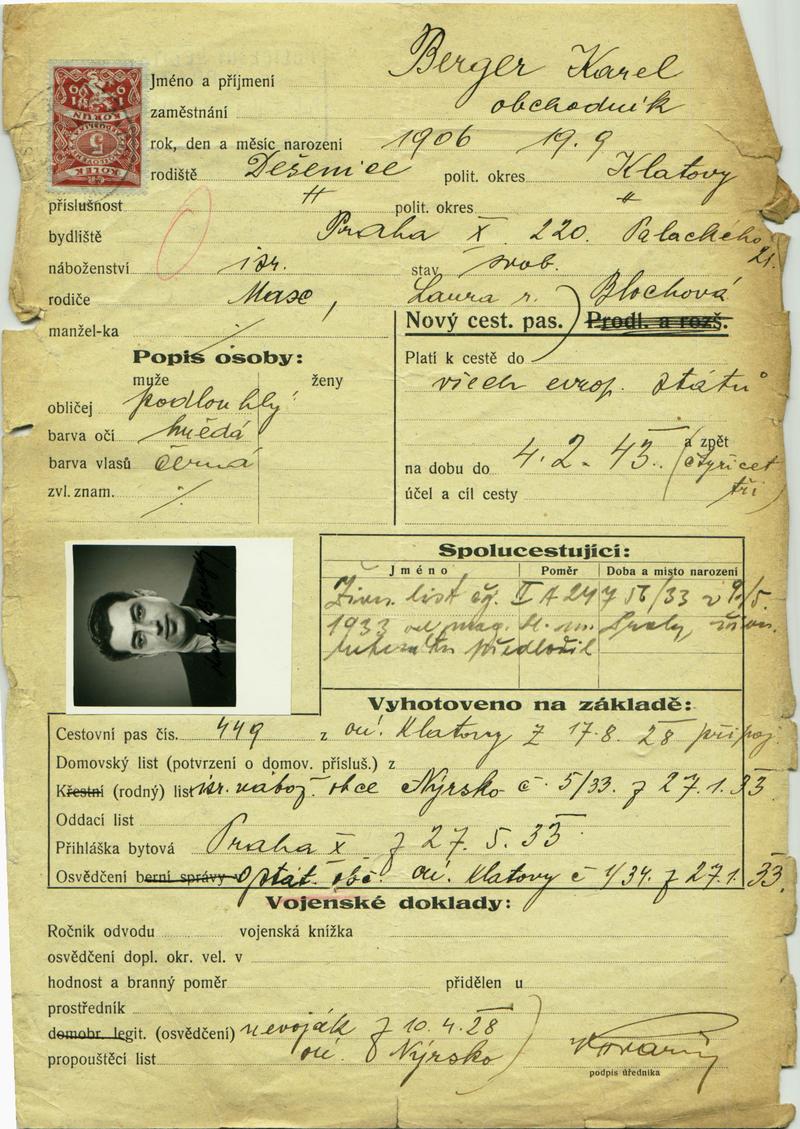 Jméno a příjmení Berger Karel
zaměstnání obchodník
rok, den a měsíc narození 1906 19. 9
rodiště Dešenice polit. okres Klatovy
příslušnost " polit. okres "
bydliště Praha X 220. Palackého 21.
náboženství isr. stav svob.
rodiče Max, Laura r. Blochová
manžel-ka ·/·
Nový cest. pas. Prodl. a rozš.
Popis osoby:
muže ženy
obličej podlouhlý
barva očí hnědá
barva vlasů černá
zvl. znam. ·/·
Platí k cestě do
všech evrop. států
a zpět
na dobu do 4. 2. 43. (čtyřicet tři)
účel a cíl cesty
KOLEK
5
KORUN
1919
Spolucestující:
Jméno Poměr Doba a místo narození
Živn. list čj. II A 247 56/33 z 9/5.
1933 od mag. hl. m. Prahy, živn.
předložil
Vyhotoveno na základě:
Cestovní pas čís. 449 z oú. Klatovy z 17. 8. 28 připoj.
Domovský list (potvrzení o domov. přísluš.) z
Křestní (rodný) list isr. nábož. obce Nýrsko č. 5/33. z 27. 1. 33
Oddací list
Přihláška bytová Praha X z 27. 5. 33
Osvědčení berní správy o stát. obč. oú. Klatovy č 1/34. z 27. 1. 33.
Vojenské doklady:
Ročník odvodu vojenská knížka
osvědčení dopl. okr. vel. v
hodnost a branný poměr přidělen u
prostředník
domobr. legit. (osvědčení) nevoják z 10. 4. 28
propouštěcí list oú. Nýrsko
podpis úředníka